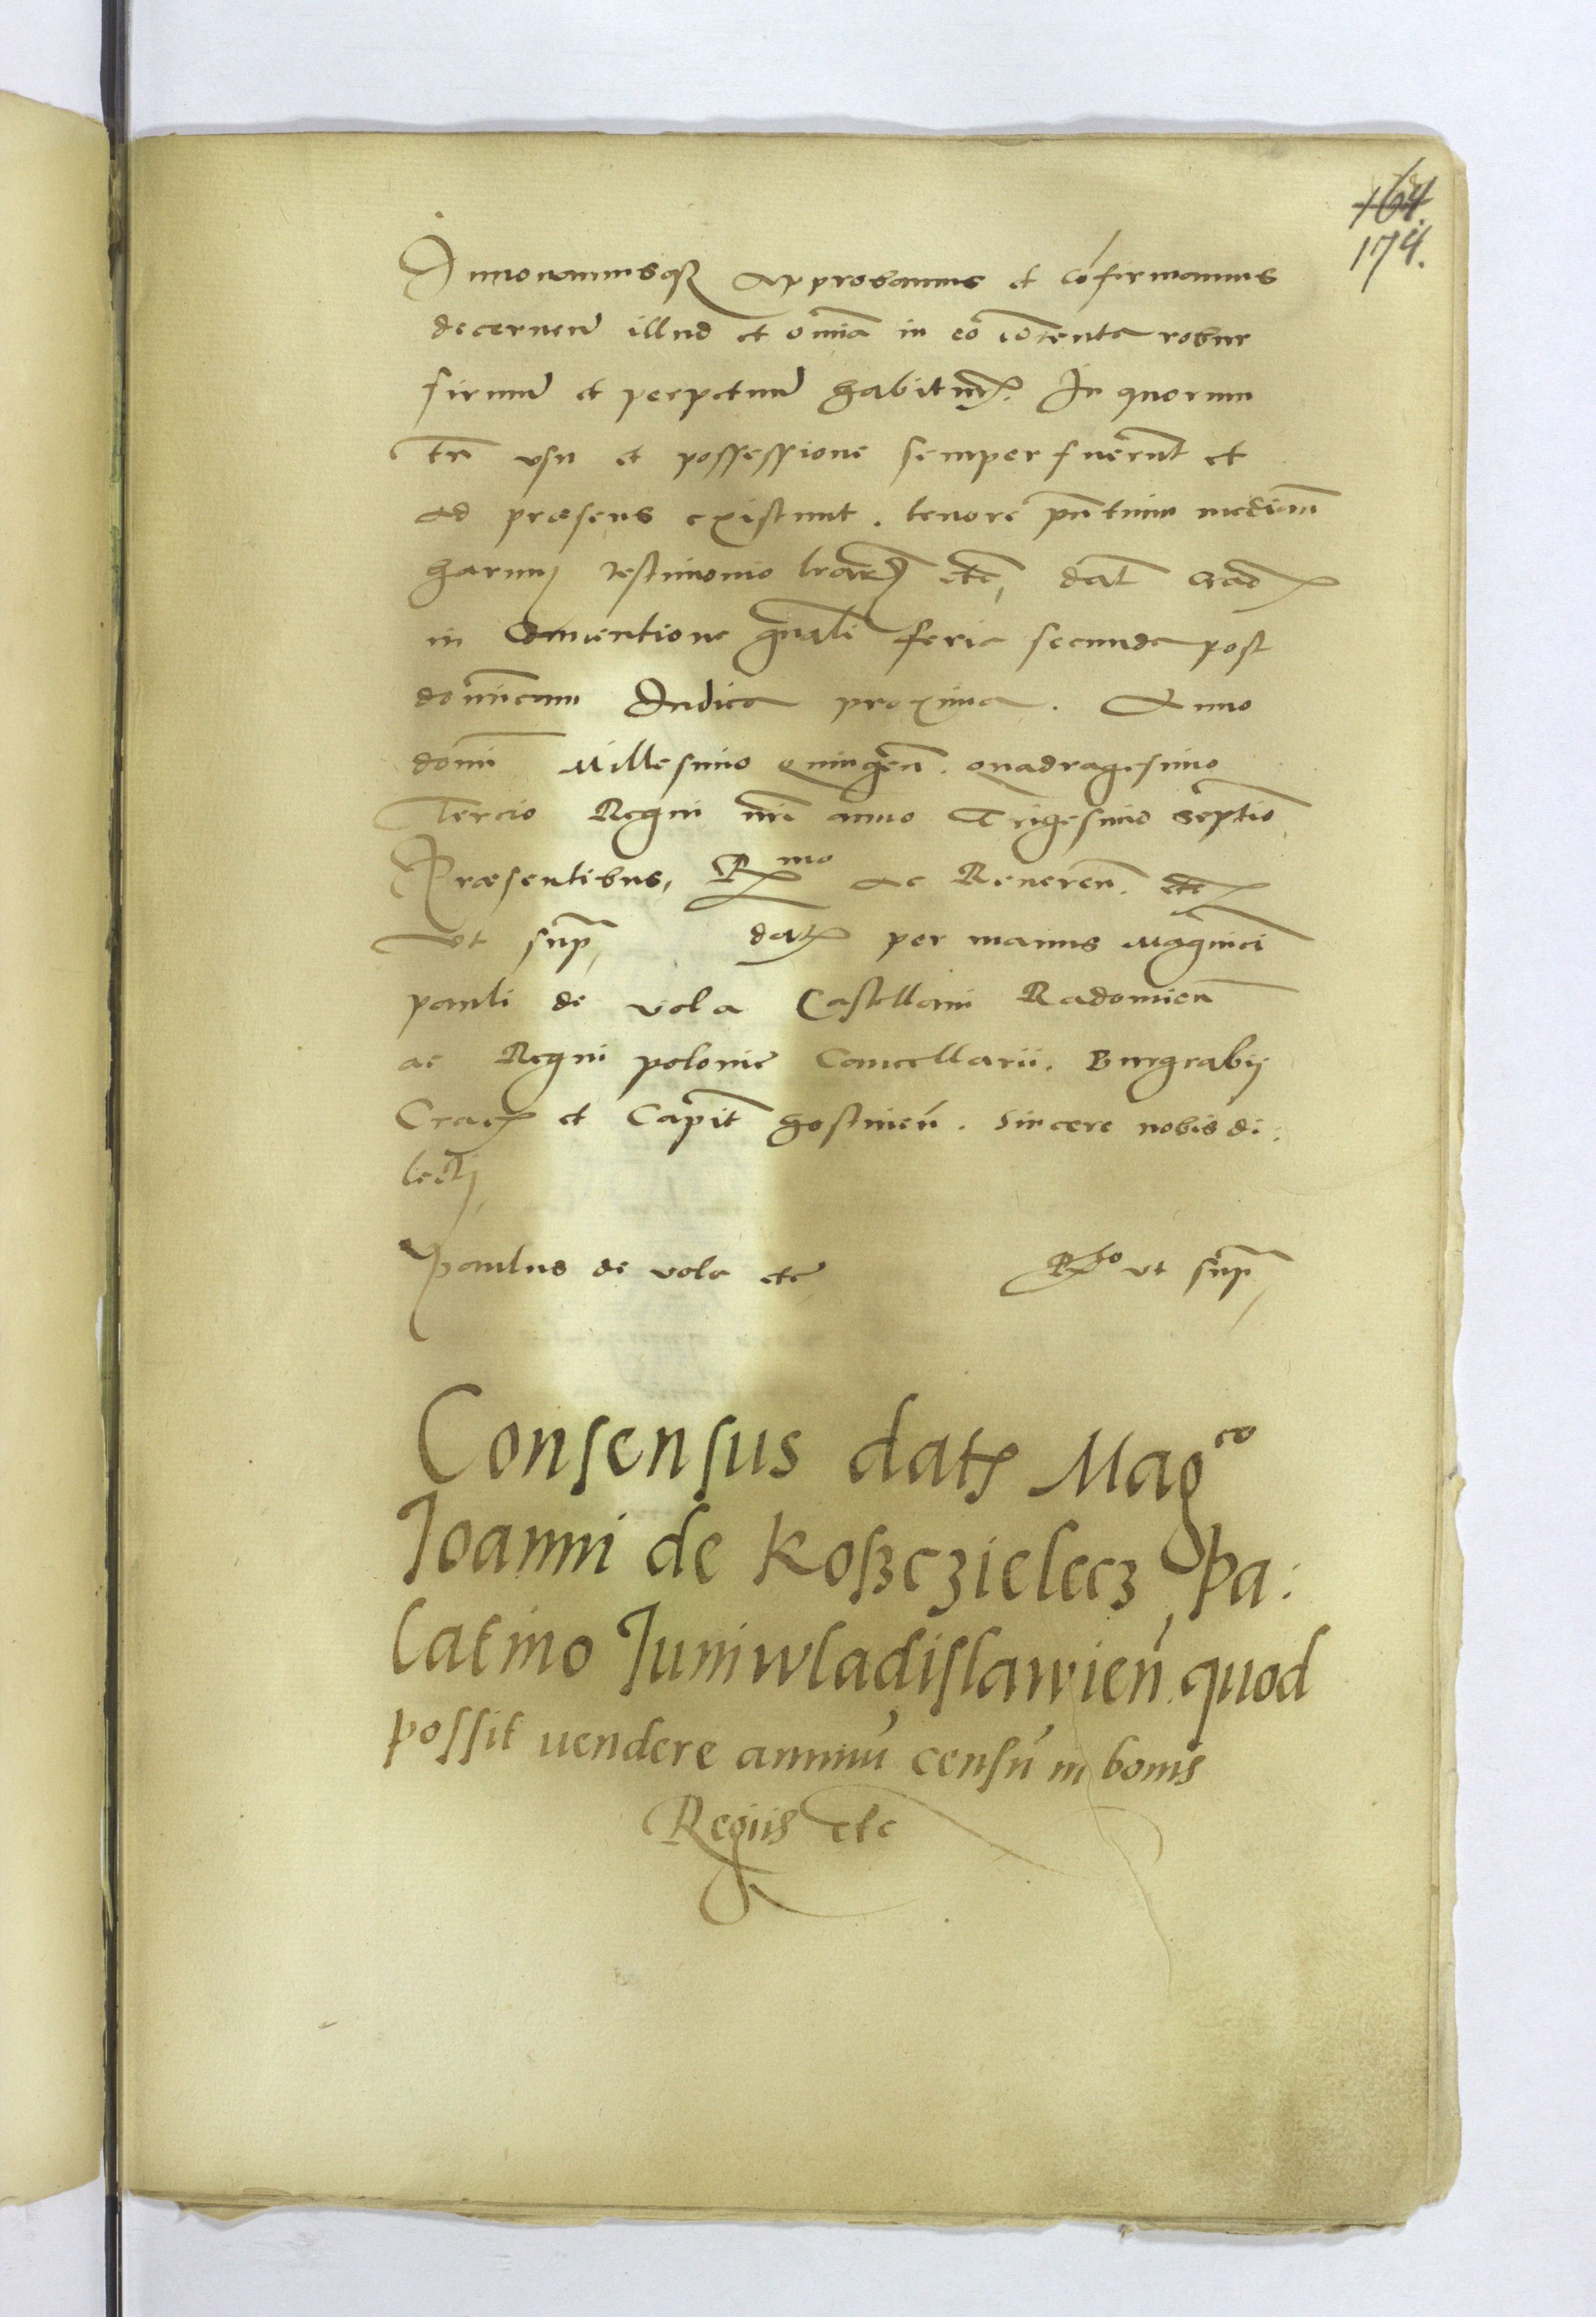 164.
174.
Innouamusq3 approbamus et cōfirmamus
decernen̄ illud et om̄ia in eo cōtenta robur
firmū et perpetuū habitur̄. In quorum
tn̄ vsu et possessione semper fuerūt et
ad præsens existunt. tenore pn̄tium median̄
harum testimonio lrarū etc, dat Crac
in Conuentione gn̄ali feria secunda post
dominicam Iudica proxima. Anno
domi Millesimo quingen̄. quadragesimo
Tercio Regni nr̄i anno Trigesimo Septīo
Præsentibus, Rmo ac Reueren̄. etc
Vt supͣ, dat per manus Magnici
pauli de vola Castellani Radomien̄
ac Regni polonie Cancellarii. Burgrabij
Crac et Capit gostinen̄. Sincere nobis di:
lecti,
Paulus de vola etc Rlo vt sup,
Consensus dat Magco
Ioanni de Kosczielecz Pa:
latino Iuniwladislawien̄, quod
possit uendere annuū censū in bonis
Regiis etc